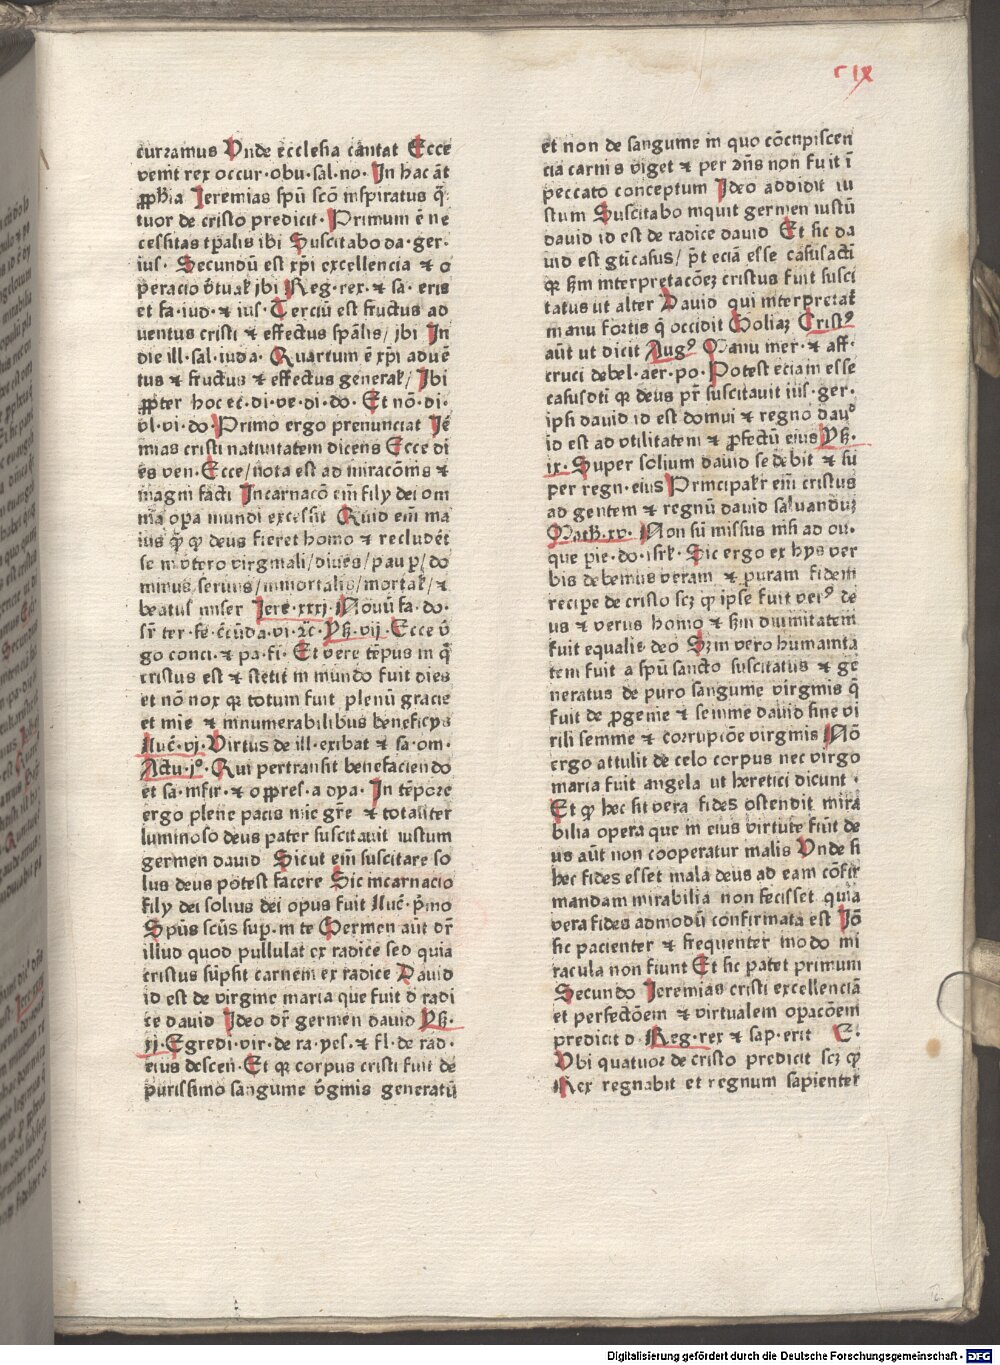 cix
curramus Vnde ecclesia cantat Ecce
venit rex occur·obu·sal·no· In hac āt
ꝓph̄ia Jeremias spū scō inspiratus q̄
tuor de cristo predicit· Primum ē ne
cessitas tp̄alis ibi Suscitabo da·ger·
ius· Secundū est xp̄i excellencia ⁊ o
peracio v̄tual̕ ibi Reg·rex·⁊ sa·eris
et fa·iud·⁊ ius· Terciū est fructus ad
uentus cristi ⁊ effectus spālis/ ibi In
die ill·sal·iuda· Quartum ē xp̄i aduē
tus ⁊ fructus ⁊ effectus general̕/ Ibi
ꝓpter hoc ec·di·ve·di·do· Et nō·di·
vl·vi·do· Primo ergo prenunciat Je̅
mias cristi natiuitatem dicens Ecce di
es ven· Ecce/nota est admiracōnis ⁊
magni facti Incarnacō eim̄ fily dei om
nia opa mundi excessit Quid eim̄ ma
ius q̄ ꝙ deus fieret homo ⁊ recludēt̕
se in vtero virginali/diues/paup̱/do
minus/seruus/inmortalis/mortal̕/⁊
beatus miser Jere·xxxi· Nouū fa·do·
sr̄ ter·fe·c̄cūda·vi·⁊c̄· Ysͣ·vij· Ecce v̄
go conci·⁊ pa·fi· Et vere tēpus in q̄
cristus est ⁊ stetit in mundo fuit dies
et nō nox ꝙ totum fuit plenū gracie
et mie ⁊ innumerabilibus beneficys
Luc̄·vj· Virtus de ill·exibat ⁊ sa·om·
Actu·jͦ· Qui pertransit benefaciendo
et sa·infir·⁊ oppres·a dya· In tēpore
ergo plene pacis nīc gr̄e ⁊ totaliter
luminoso deus pater suscitauit iustum
germen dauid Sicut eim̄ suscitare so
lus deus potest facere Sic incarnacio
fily dei solius dei opus fuit Luc̄·p̄mo
Spūs scūs sup·in te Germen aūt dr̄
illud quod pullulat ex radice sed quia
cristus sūpsit carnem ex radice Dauid
id est de virgine maria que fuit d̄ radi
ce dauid Ideo dr̄ germen dauid Ysͣ·
xj· Egredi·vir·de ra·yes·⁊ fl·de rad·
eius descen· Et ꝙ corpus cristi fuit de
purissimo sanguine v̄ginis generatū
et non de sanguine in quo cōcupiscen
cia carnis viget ⁊ per dn̄s non fuit ī
peccato conceptum Ideo addidit iu
stum Suscitabo inquit germen iustū
dauid id est de radice dauid Et sic da
uid est gticasus/ pt̄ eciā esse casusacti
ꝙ sm̄ interpretacōez cristus fuit susci
tatus ut alter Dauid qui interpretat̕
manu fortis q̄ occidit Goliaz Crist⁹
aūt ut dicit Aug⁹ Manu mer·⁊ aff·
cruci debel·aer·po· Potest eciam esse
casusdti ꝙ deus pr̄ suscitauit ius·ger·
ipsi dauid id est domui ⁊ regno daud
id est ad vtilitatem ⁊ ꝓfectū eius Ysͣ·
ix· Super solium dauid sedebit ⁊ su
per regn·eius Principalr̕ eim̄ cristus
ad gentem ⁊ regnū dauid saluandū
Math̄·xv· Non sū missus nisi ad ou·
que pie·do·isrl̕· Sic ergo ex hys ver
bis debemus veram ⁊ puram fidem
recipe de cristo scz ꝙ ipse fuit ver⁹ de
us ⁊ verus homo ⁊ sm̄ diuinitatem
fuit equalis deo Szm vero humanita
tem fuit a spū sancto suscitatus ⁊ ge
neratus de puro sanguine virginis q̄
fuit de ꝓgenie ⁊ semine dauid sine vi
rili semine ⁊ corrupcōe virginis Nō
ergo attulit de celo corpus nec virgo
maria fuit angela ut heretici dicunt ·
Et ꝙ hec sit vera fides ostendit mira
bilia opera que in eius virtute fiūt de
us aūt non cooperatur malis Vnde si
hec fides esset mala deus ad eam cōfir
mandam mirabilia non fecisset quia
vera fides admodū confirmata est Jō
sic pacienter ⁊ frequenter modo mi
racula non fiunt Et sic patet primum
Secundo Jeremias cristi excellenciā
et perfectōem ⁊ virtualem opacōem
predicit d Reg·rex ⁊ sap·erit ·E·
Vbi quatuor de cristo predicit scz ꝙ
Rex regnabit et regnum sapienter
Digitalisierung gefördert durch die Deutsche Forschungsgemeinschaft - DFG